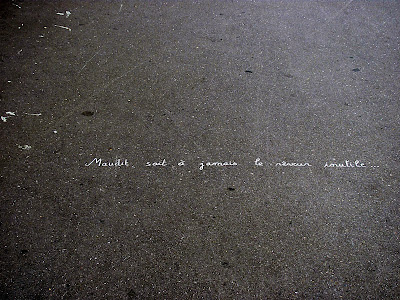 Maudit soit à jamais le rêveur inutile...